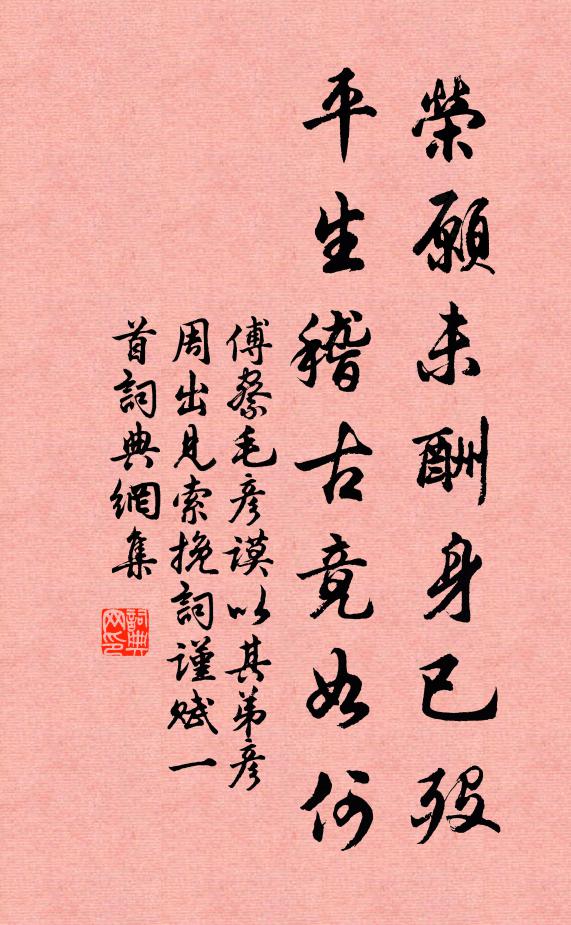 榮願未酬身已歿
平生稽古竟如何
傅察毛彥謨以其弟彥
周出見索挽詞謹賦一
首詞典網集
詞典網印